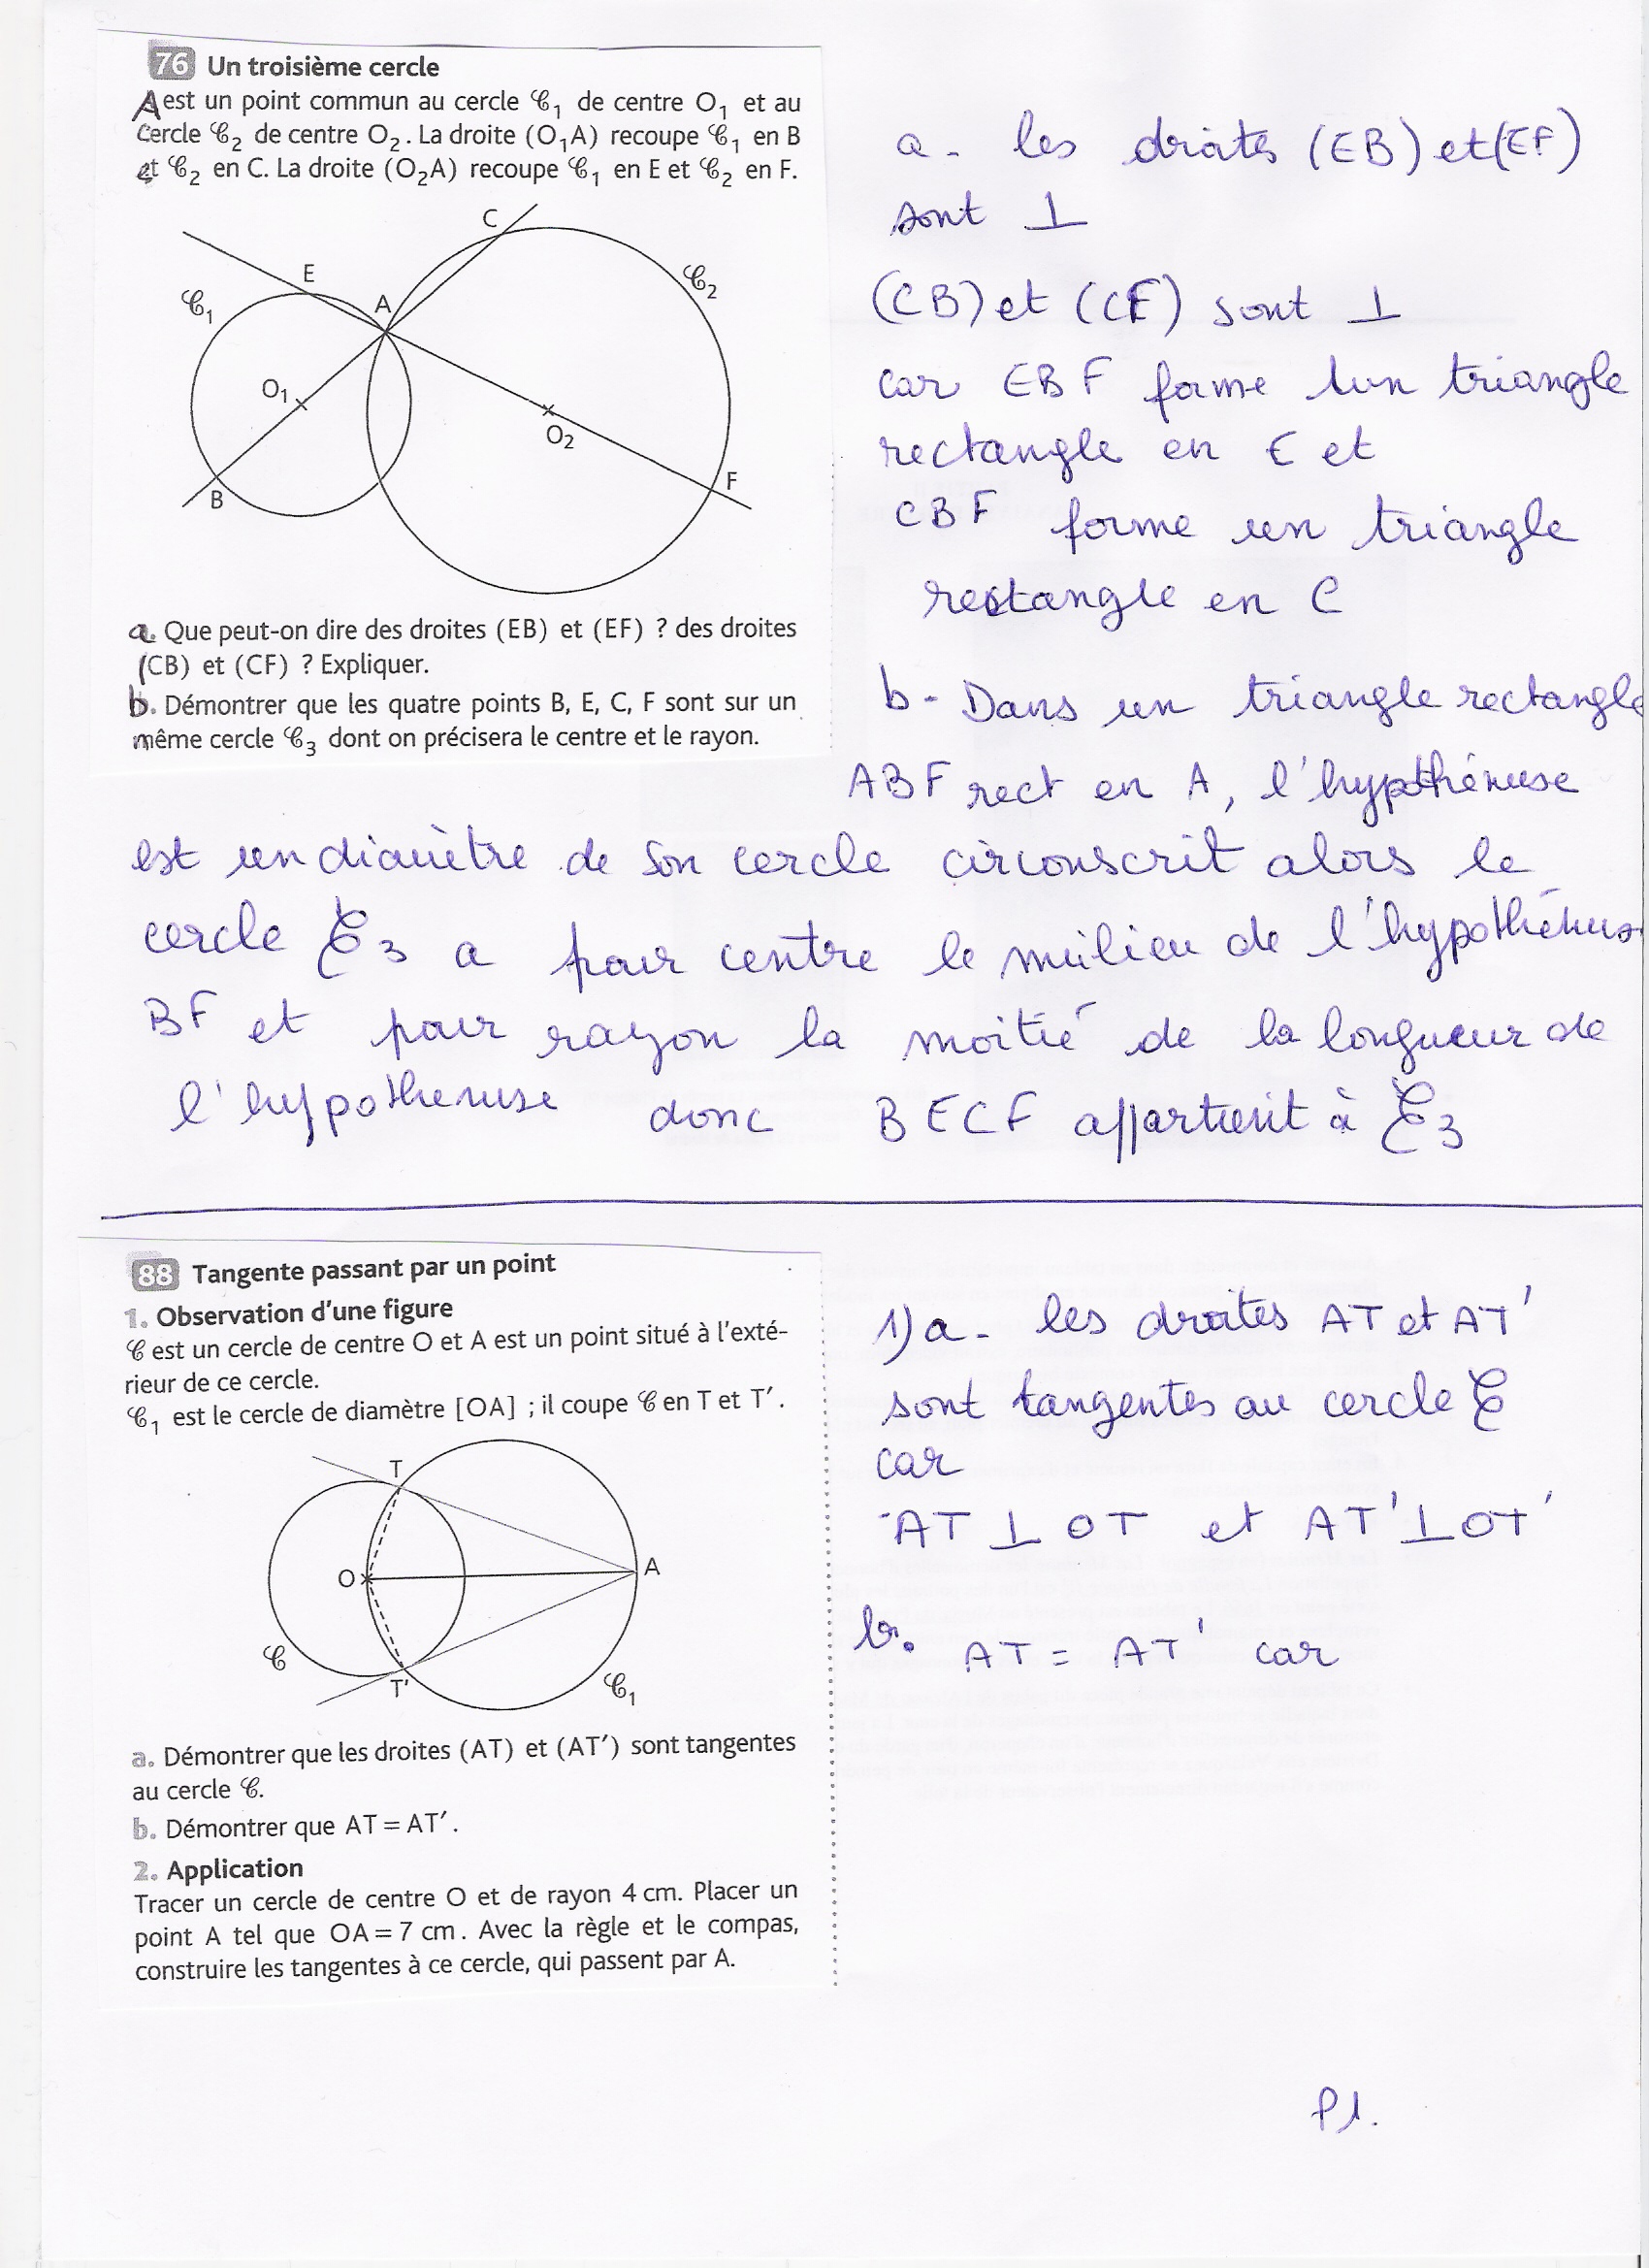 76 Un troisième cercle
A est un point commun au cercle 𝒞1 de centre O1 et au
cercle 𝒞2 de centre O2. La droite (O1A) recoupe 𝒞1 en B
et 𝒞2 en C. La droite (O2A) recoupe 𝒞1 en E et 𝒞2 en F.
C
𝒞2
E
𝒞1
A
O1
O2
B
F
a. Que peut-on dire des droites (EB) et (EF) ? des droites
(CB) et (CF) ? Expliquer.
b. Démontrer que les quatre points B, E, C, F sont sur un
même cercle 𝒞3 dont on précisera le centre et le rayon.
a - les droites (EB) et (EF)
sont ⊥
(CB) et (CF) sont ⊥
car EBF forme un triangle
rectangle en E et
CBF forme un triangle
rectangle en C
b - Dans un triangle rectangle
ABF rect en A, l'hypothénuse
est un diamètre de son cercle circonscrit alors le
cercle 𝒞3 a pour centre le milieu de l'hypothénuse
BF et pour rayon la moitié de la longueur de
l'hypothenuse donc BECF appartient à 𝒞3
88 Tangente passant par un point
1. Observation d'une figure
𝒞 est un cercle de centre O et A est un point situé à l'exté-
rieur de ce cercle.
𝒞1 est le cercle de diamètre [OA] ; il coupe 𝒞 en T et T′.
T
O
A
𝒞
T'
𝒞1
a. Démontrer que les droites (AT) et (AT′) sont tangentes
au cercle 𝒞.
b. Démontrer que AT = AT′.
2. Application
Tracer un cercle de centre O et de rayon 4 cm. Placer un
point A tel que OA = 7 cm. Avec la règle et le compas,
construire les tangentes à ce cercle, qui passent par A.
1) a - les droites AT et AT'
sont tangentes au cercle 𝒞
car
AT ⊥ OT et AT' ⊥ OT'
b. AT = AT' car
P1.